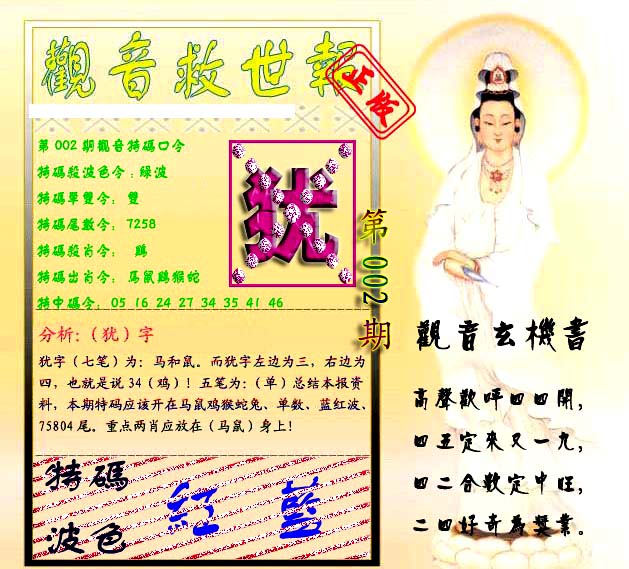 觀音救世報
正版
第002期觀音特碼口令
特碼殺波色令:綠波
特碼單雙令: 雙
特碼尾數令: 7258
特碼殺肖令: 鷄
特碼出肖令: 馬鼠鷄猴蛇
特中碼令: 05 16 24 27 34 35 41 46
犹
第002期
分析:(犹)字
犹字(七笔)为:马和鼠。而犹字左边为三,右边为
四,也就是说34(鸡)!五笔为:(单)总结本报资
料,本期特码应该开在马鼠鸡猴蛇兔、单数、蓝红波、
75804尾。重点两肖应放在(马鼠)身上!
特碼
波色
紅 藍
觀音玄機書
高聲歡呼四四開,
四五定來又一九,
四二合數定中旺,
二四好奇為獎業。